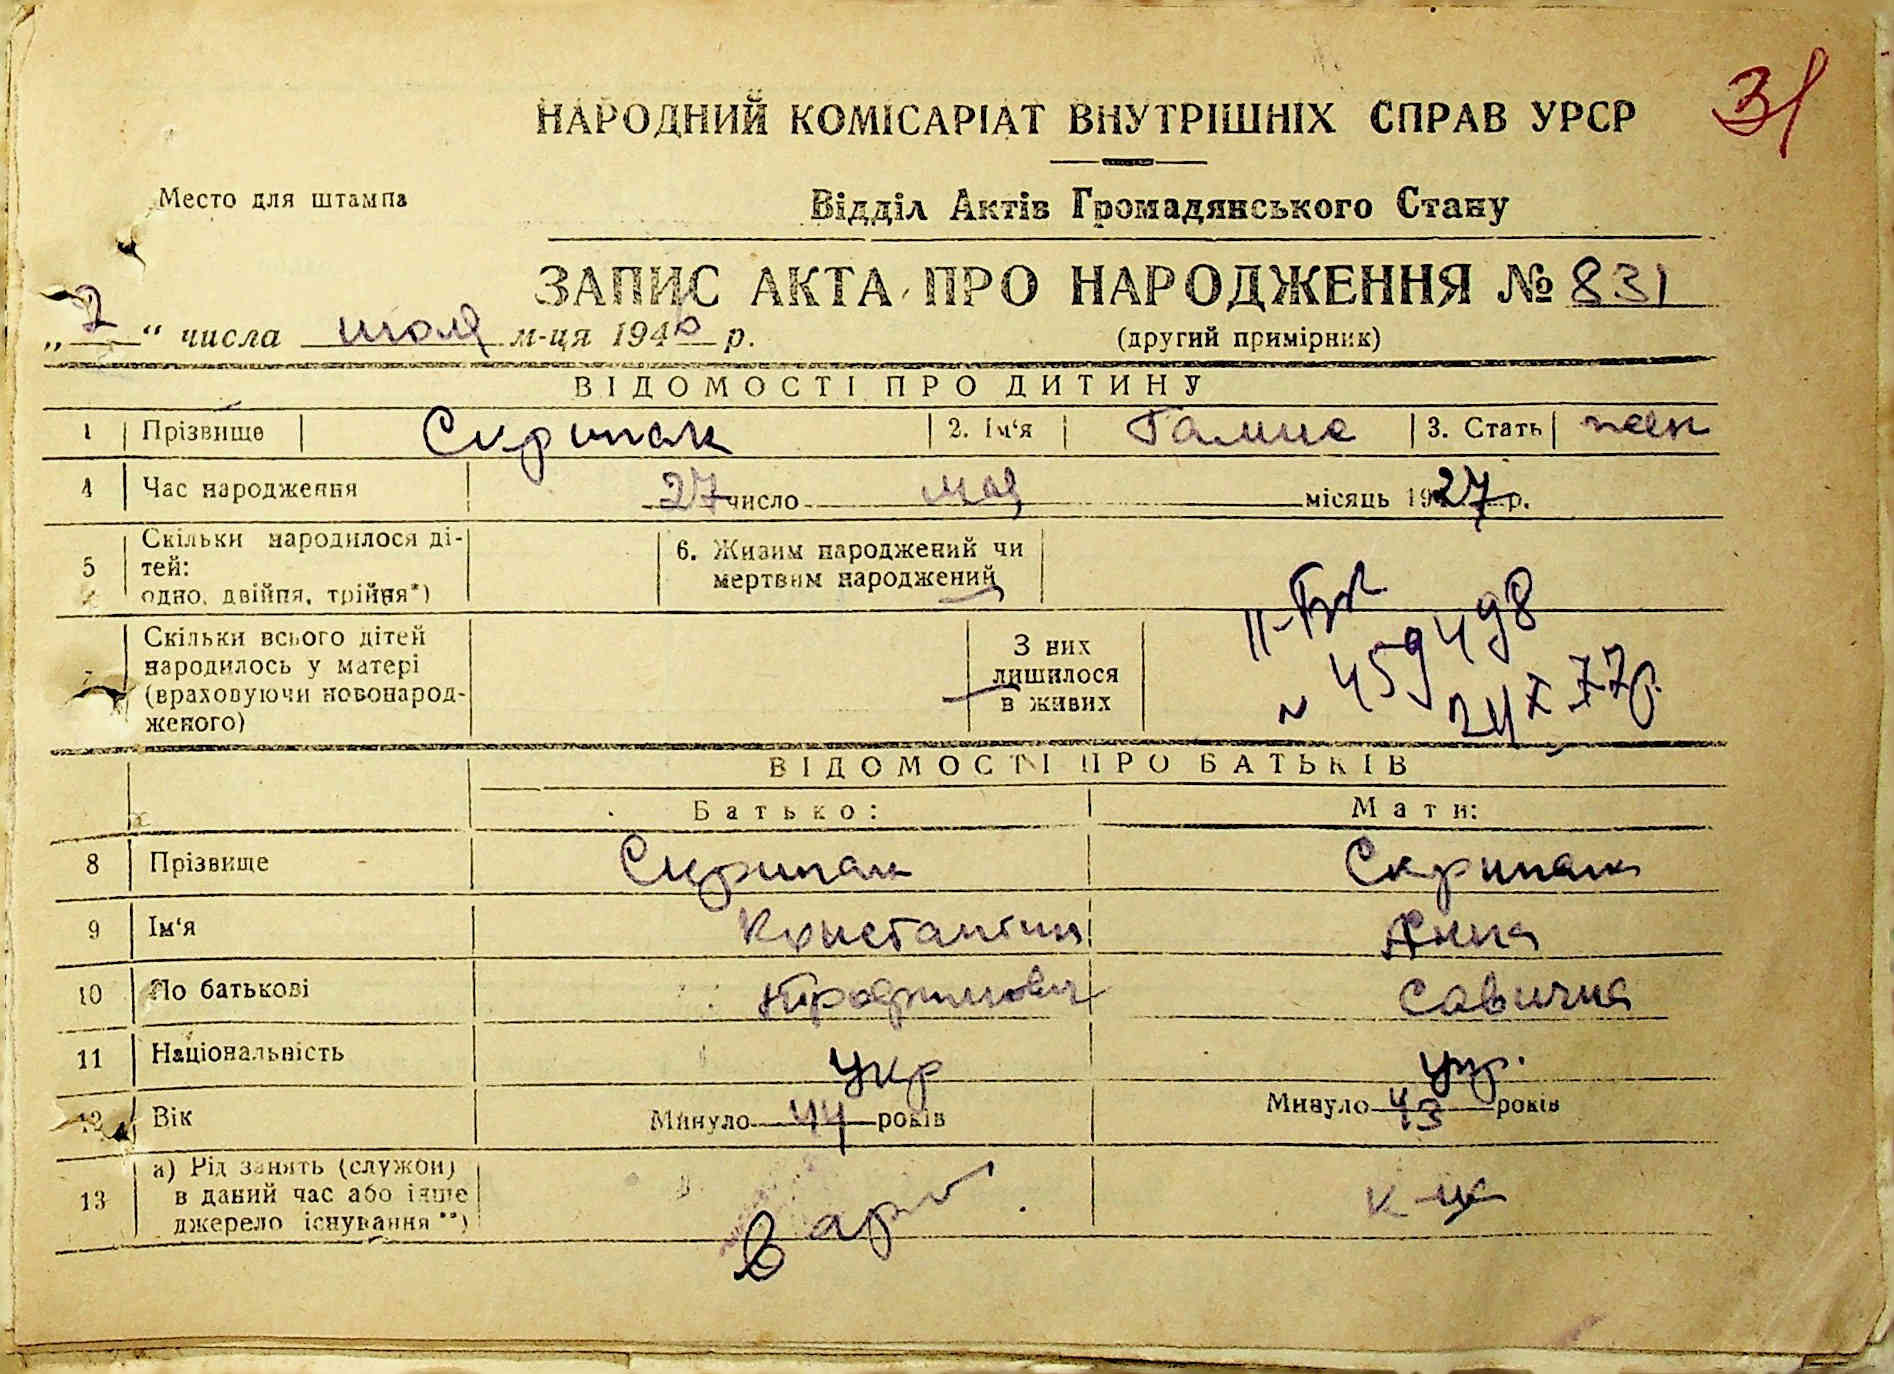 31
НАРОДНИЙ КОМІСАРІАТ ВНУТРІШНІХ СПРАВ УРСР
Место для штампа
Відділ Актів Громадянського Стану
ЗАПИС АКТА ПРО НАРОДЖЕННЯ № 831
„2“ числа июля м-ця 1946 р.
(другий примірник)
ВІДОМОСТІ ПРО ДИТИНУ
1 Прізвище Скрипак 2. Ім‘я Галина 3. Стать жен
4 Час народження 27 число мая місяць 1927 р.
5 Скільки народилося ді-
тей:
одно, двійня, трійня*)
6. Живим народжений чи
мертвим народжений
7 Скільки всього дітей
народилось у матері
(враховуючи новонарод-
женого)
З них
лишилося
в живих
II-БК
№ 459498
24 X 77р.
ВІДОМОСТІ ПРО БАТЬКІВ
Батько: Мати:
8 Прізвище Скрипак Скрипак
9 Ім‘я Константин Анна
10 По батькові Трофимович Савична
11 Національність укр укр.
12 Вік Минуло 44 років Минуло 43 років
13 а) Рід занять (служби)
в даний час або інше
джерело існування**)
в арм к-ца